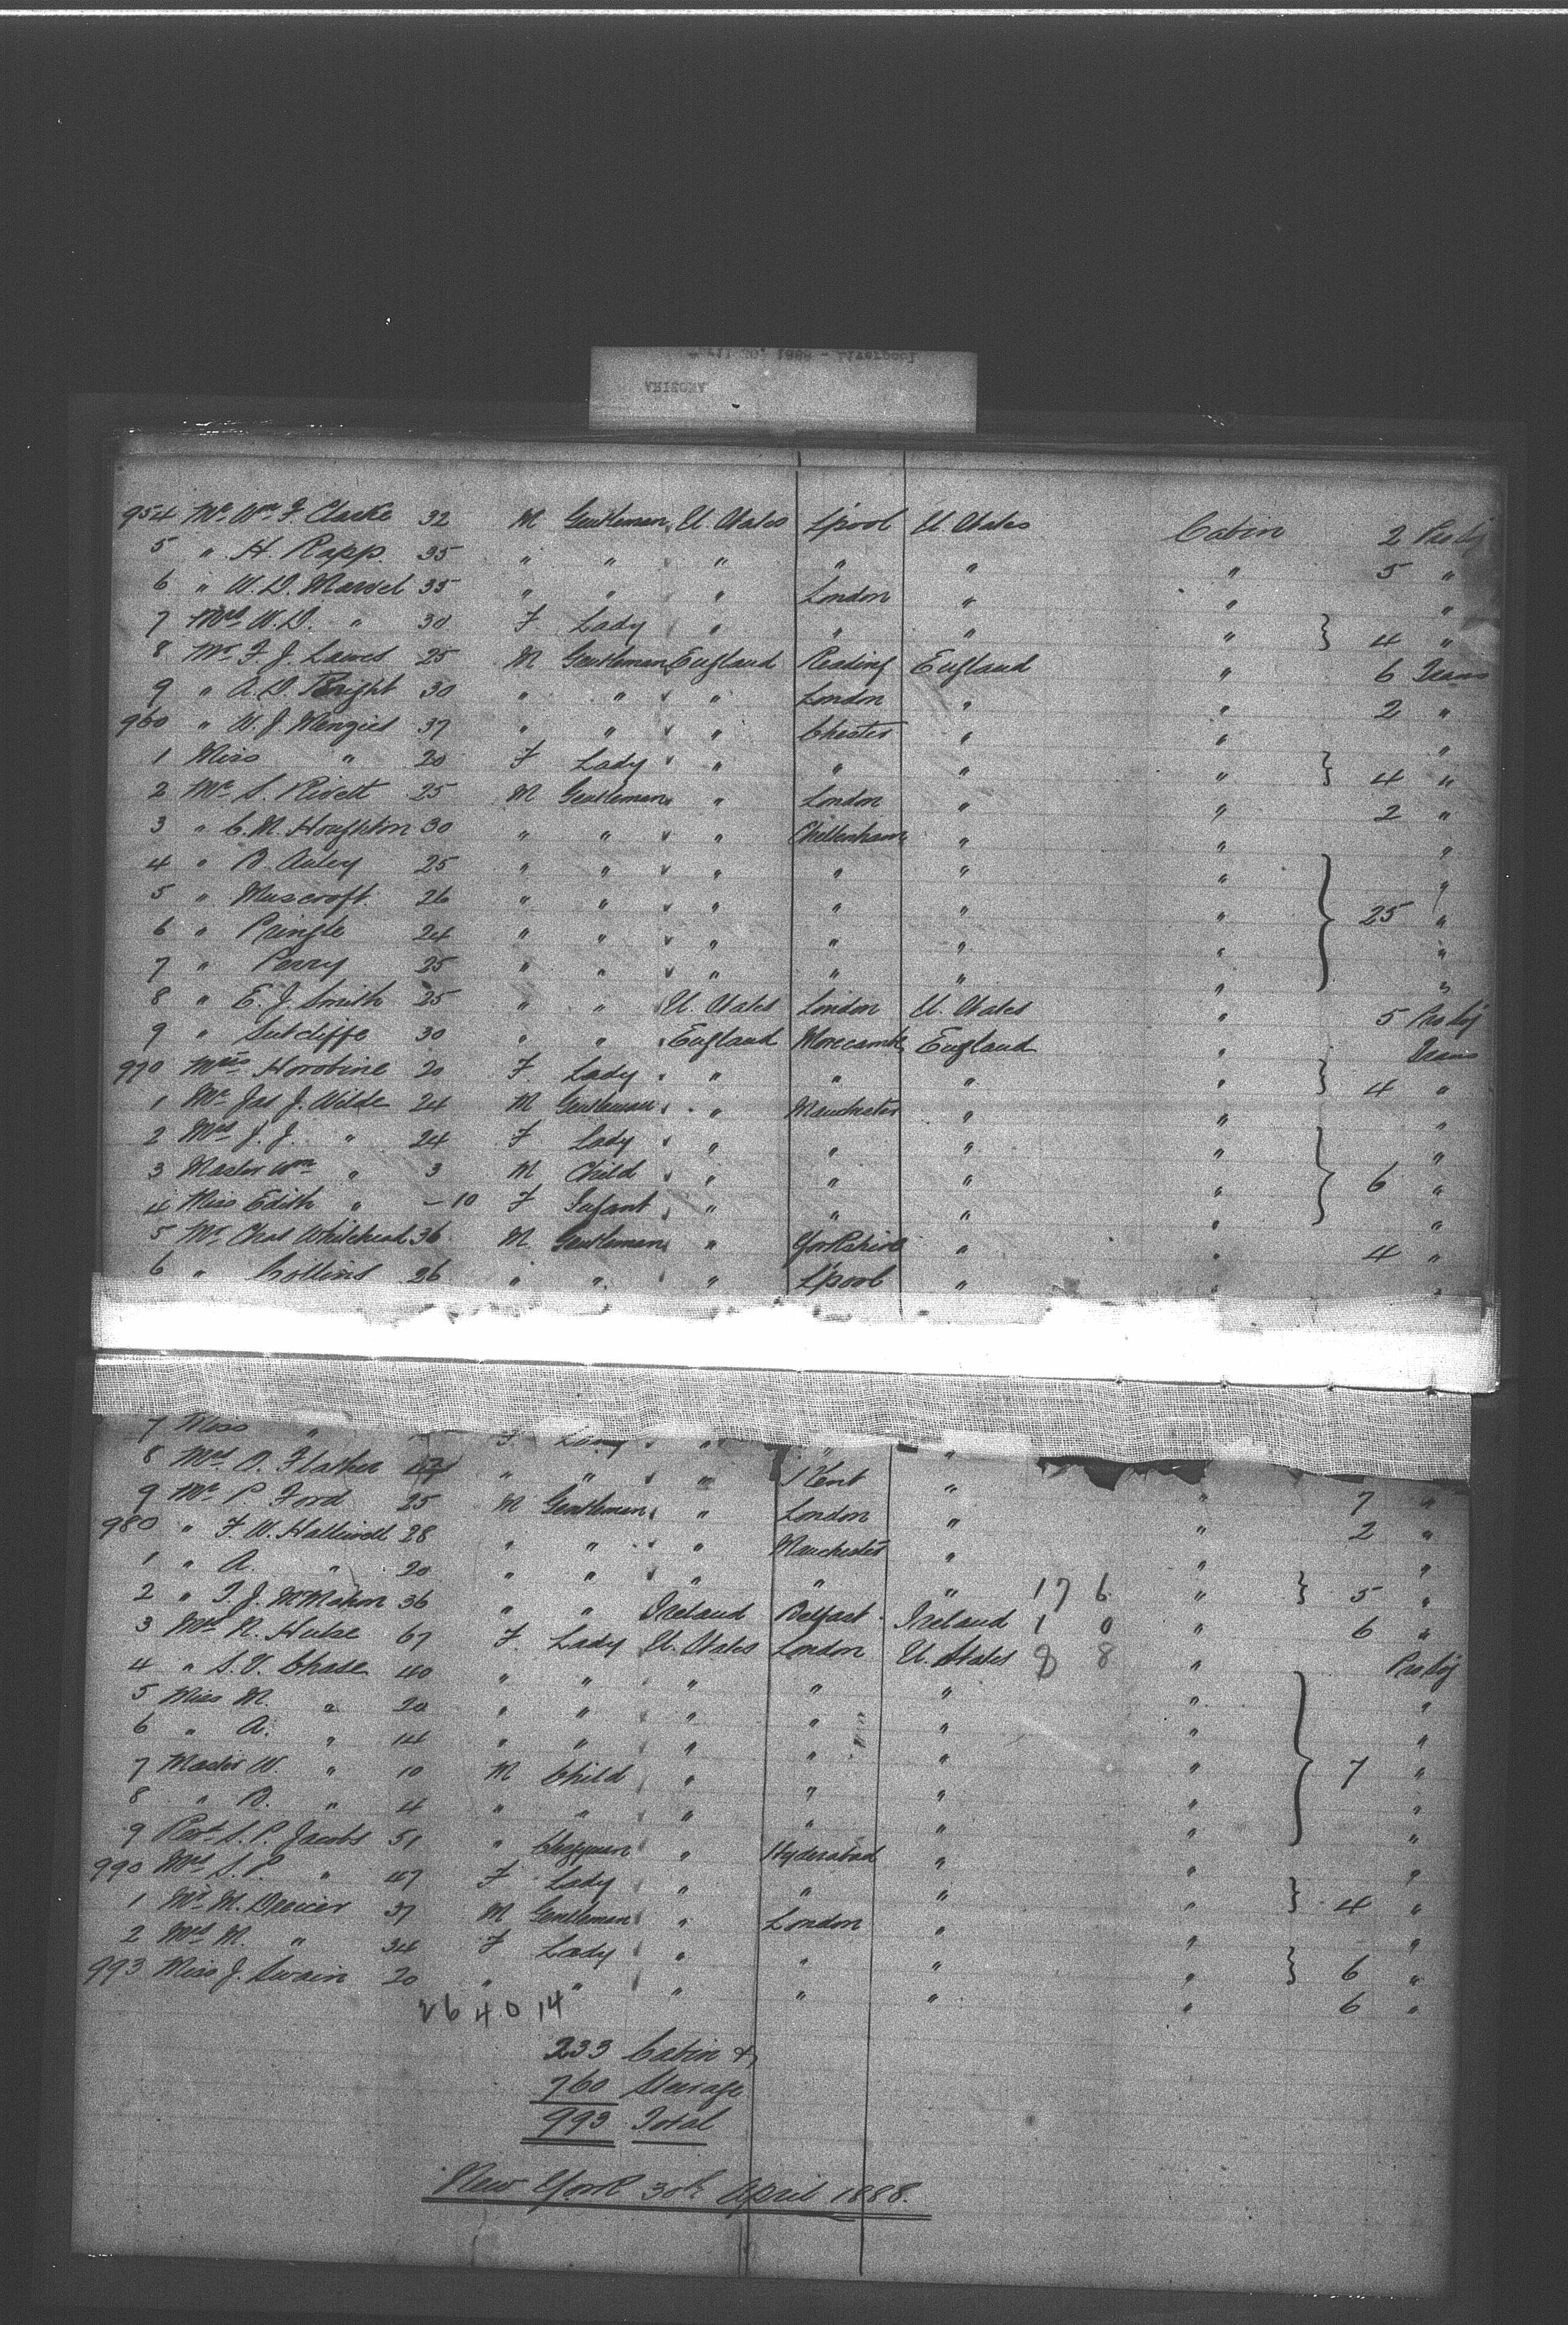 April 30, 1888 - Liverpool
ARIZONA
954 Mr. Wm. F. Clarke 32 M Gentleman U. States L'pool U. States Cabin 2 Pro Soj
5 " H. Rapp 35 " " " " " " 5 "
6 " W. D. Marvel 35 " " " London " " "
7 Mrs W. D. " 30 F Lady " " " " } 4 "
8 Mr. F. J. Lawes 25 M Gentleman England Reading England " 6 Trans
9 " A. D. Bright 30 " " " London " " 2 "
960 " W. J. Menzies 37 " " " Chester " " "
1 Miss " 20 F Lady " " " " } 4 "
2 Mr. S. Rivett 25 M Gentleman " London " " 2 "
3 " C. M. Houghton 30 " " " Cheltenham " " "
4 " B. 25 " " " " " " "
5 " Muscroft 26 " " " " " " } 25 "
6 " Pringle 24 " " " " " " "
7 " Perry 25 " " " " " " "
8 " E. J. Smith 25 " " U. States London U. States " 5 Pro Soj
9 " Sutcliffe 30 " " England Morecambe England " Trans
970 Horobine 20 F Lady " " " " } 4 "
1 Mr. Jas J. Wilde 24 M Gentleman " Manchester " " "
2 Mrs J. J. " 24 F Lady " " " " "
3 Master Wm " 3 M Child " " " " } 6 "
4 Miss Edith " - 10 F Infant " " " " "
5 Mr. Chas Whitehead 36 M Gentleman " Yorkshire " " 4 "
6 " Collins 26 " " " L'pool " " "
7 Miss " F Lady " " "
8 Mrs O. 47 " " " Kent " " 7 "
9 Mr. P. Ford 25 M Gentleman " London " " 2 "
980 " F. W. Halliwell 28 " " " Manchester " " "
1 " A. " 20 " " " " " 17 6 " } 5 "
2 " T. J. McMahon 36 " " Ireland Belfast Ireland 1 0 " 6 "
3 Mrs R. Hulse 67 F Lady U. States London U. States 8 8 " Pro Soj
4 " S. V. Chase 40 " " " " " " "
5 Miss M. " 20 " " " " " " "
6 " A. " 14 " " " " " " "
7 Master W. " 10 M Child " " " " } 7 "
8 " B. " 4 " " " " " " "
9 Revd. S. P. Jacobs 51 " Clergyman " Hyderabad " " "
990 Mrs S. P. " 47 F Lady " " " " } 4 "
1 Mr. M. 37 M Gentleman " London " " "
2 Mrs M. " 34 F Lady " " " " } 6 "
993 Miss J. Swain 20 " " " " " " 6 "
26 4 0 14
233 Cabin &
760 Steerage
993 Total
New York 30th April 1888.